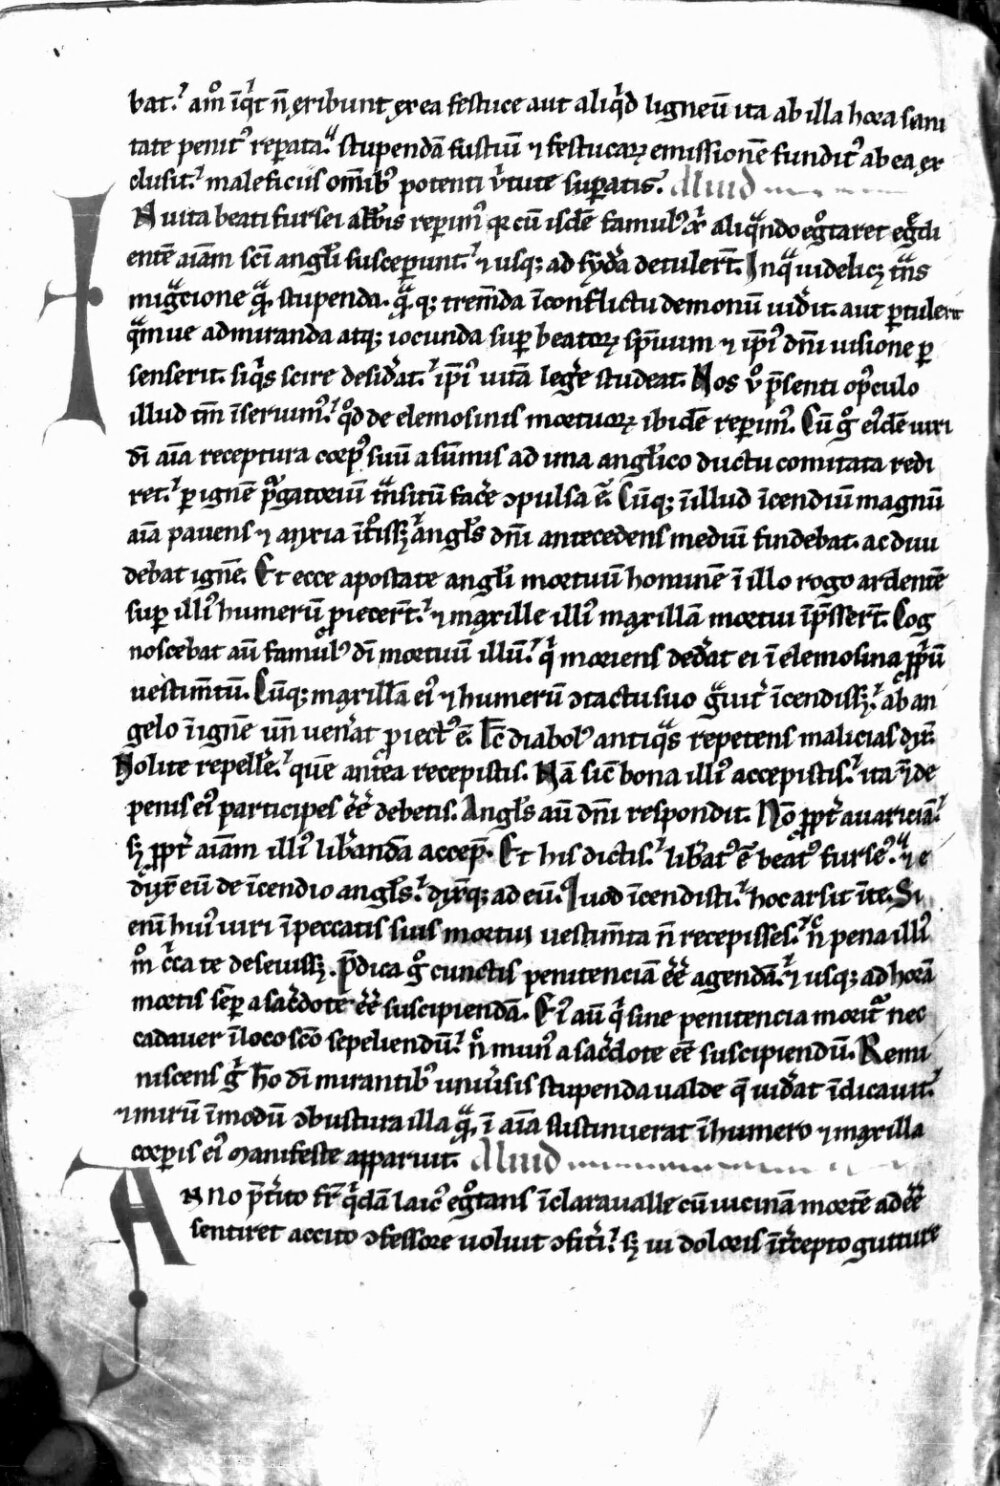 bat. am̊ iq̄t n̄ exibunt ex ea festuce aut aliqͥd ligneū ita ab illa hora sani
tate penitꝰ reparata. stupendā fustiū ⁊ festucaꝝ emissionē funditꝰ ab ea ex
clusit. maleficiis om̄ibꝰ potenti v̓tute suꝑatis. Aliud
IN uita beati fursei abb̄is reperimꝰ qꝛ cū isdē famulꝰ xp̄i aliqᵃndo eg̊taret egͤdi
entē aīam sc̄i angl̓i susceperunt. ⁊ usqꝫ ad sydͤa detuler̄t. In qᵃ uidelicꝫ tᵃns
migᵃcione qᵃꝫ stupenda. qᵃꝫqꝫ tremēda ī conflictu demonū uidit. aut ꝑtulerit
qᵃmue admiranda atqꝫ iocunda suꝑ beatoꝝ sp̄iuum ⁊ ip̄iꝰ dn̄i uisione ꝑ
senserit. siqͥs scire desidͤat. ip̄iꝰ uitā legͤe studeat. Nos v̊ p̄senti opͨculo
illud tm̄ īseruimꝰ. qd̊ de elemosinis mortuoꝝ ibidē reperimꝰ. Cū gͦ eiꝰdē uiri
dī aīa receptura corpꝰ suū a sūmis ad ima angl̓ico ductu comitata redi
ret. ꝑ ignē pͧgatoriū tᵃnsitū facͤe ↄpulsa ē. Cūqꝫ ī illud īcendiū magnū
aīa pauens ⁊ anxia īt̓ssꝫ angl̓s dn̄i antecedens mediū findebat. ac diui
debat ignē. Et ecce apostate angl̓i mortuū hominē ī illo rogo ardentē
suꝑ illiꝰ humerū piecer̄t. ⁊ maxille illiꝰ maxillā mortui īp̄sser̄t. Cog
noscebat aū famulꝰ dī mortuū illū. qͥ moriens dedͤat ei ī elemosina ꝓpͥū
uestim̄tū. Cūqꝫ maxillā eiꝰ ⁊ humerū ↄtactu suo gᵃuit̓ īcendissꝫ. ab an
gelo ī ignē un̄ venͤat ꝓiectꝰ ē. Tc̄ diabolꝰ antiqᵃs repetens malicias dix̄.
Nolite repellͤe. quē antͤa recepistis. Nā sic̄ bona illiꝰ accepistis. ita ⁊ de
penis eiꝰ participes ēē debetis. Angl̓s aū dn̄i respondit. Nō ꝓpt̓ auariciā.
sꝫ ꝓpt̓ aīam illiꝰ libͤandā accepͭ. Et his dictis. libͤatꝰ ē beatꝰ furseꝰ. ⁊
dix̄ eū de īcendio angl̓s. dixͭqꝫ ad eū. Quod īcendisti. hoc arsit ī te. Si
enī huiꝰ uiri ī peccatis suis mortui uestim̄ta n̄ recepisses. n̄ pena illiꝰ
m̊ cͥca te deseuissꝫ. P̄dica gͦ cunctis penitenciā ēē agendā. ⁊ usqꝫ ad horā
mortis sēꝑ a sacͤdote ēē suscipiendā. Eiꝰ aū qͥ sine penitencia moriͭ nec
cadauer ī loco sc̄o sepeliendū. n̄ munꝰ a sacͤdote ēē suscipiendū. Remi
niscens gͥ h̄o dī mirantibꝰ uniu̓sis stupenda ualde q̄ uidͤat īdicauit.
⁊ mirū ī modū ↄbustura illa qᵃꝫ ī aīa sustinuerat ī humero ⁊ maxilla
corꝑis eiꝰ manifeste apparuit. Aliud
ANno p̄t̓ito fr̄ qͥdā laicꝰ eg̊tans ī claraualle cū uicinā mortē adēē
sentiret accito ↄfessore uoluit ↄfit̓i. sꝫ ui doloris īt̓cepto gutture